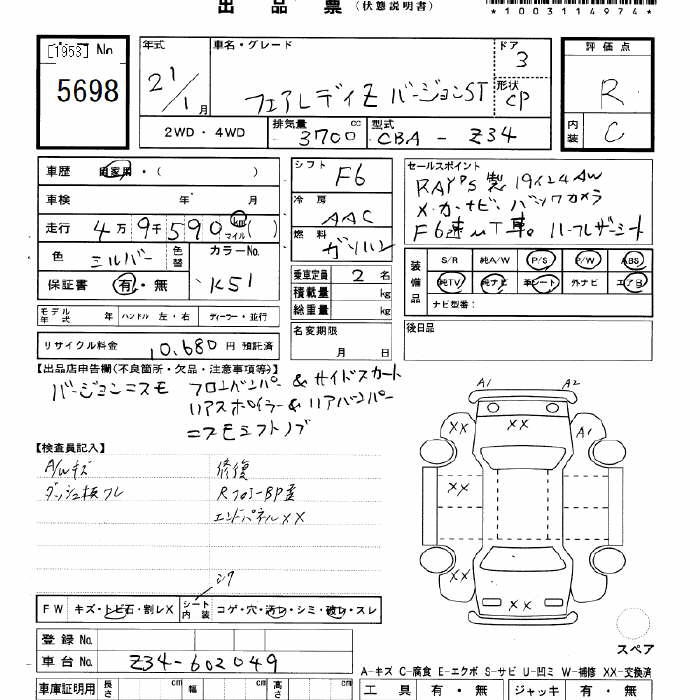 出品票 (状態説明書)
*1003114974*
[1953] No 5698
年式 21/1月
車名・グレード フェアレディZ バージョンST
ドア 3
形状 CP
評価点 R
内装 C
2WD・4WD
排気量 3700 cc
型式 CBA-Z34
車歴 自家用・( )
車検 年 月
走行 4万9千590 km マイル ( )
色 シルバー 色替
カラーNo. K51
保証書 有・無
シフト F6
冷房 AAC
燃料 ガソリン
セールスポイント
RAY'S製 19インチAW
メーカーナビ、バックカメラ
F6速MT車。ハーフレザーシート
乗車定員 2 名
積載量 kg
総重量 kg
装備品 S/R 純A/W P/S P/W ABS
純TV 純ナビ 革シート 外ナビ エアB
ナビ型番:
モデル年式 年 ハンドル 左・右 ディーラー・並行
名変期限 月 日
後日品
リサイクル料金 10,680 円 預託済
【出品店申告欄(不良箇所・欠品・注意事項等)】
バージョンニスモ フロントバンパー & サイドスカート
リアスポイラー & リアバンパー
ニスモシフトノブ
【検査員記入】
A/Wキズ 修復
エンドパネルXX
A1 A2
XX XX A1
XX
XX XX
FW キズ・トビ石・割レX シート内装 コゲ・穴・汚レ・シミ・破レ・スレ
スペア
登録No.
車台No. Z34-602049
A-キズ C-腐食 E-エクボ S-サビ U-凹ミ W-補修 XX-交換済
車庫証明用 長さ cm 幅 cm 高さ cm
工具 有・無 ジャッキ 有・無